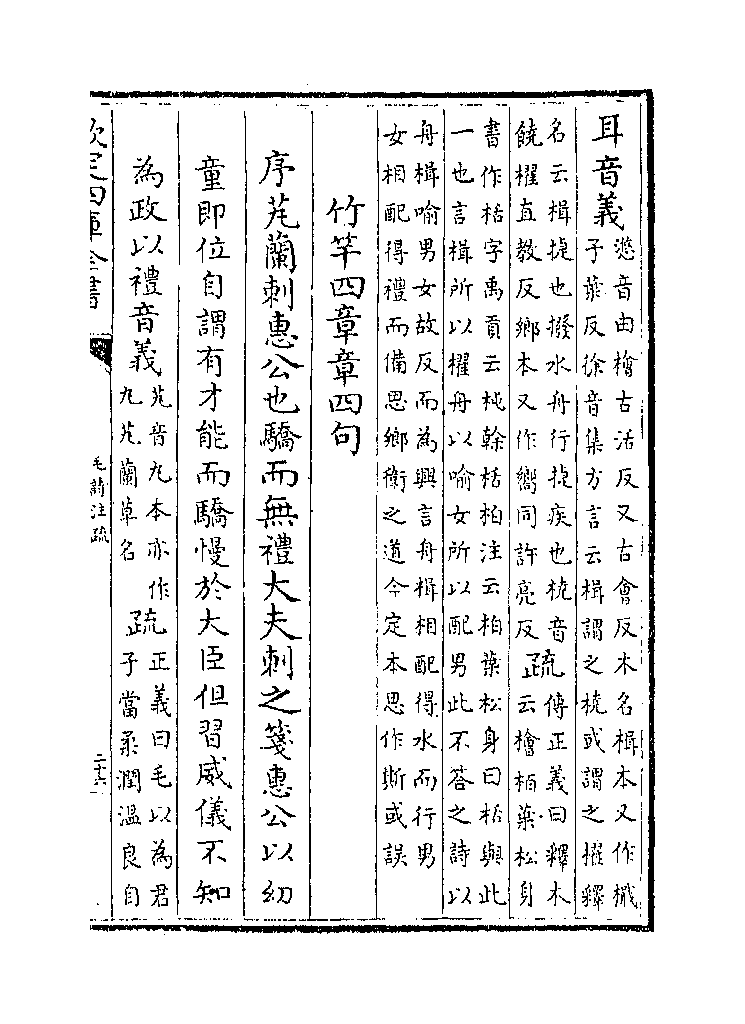 耳音義滺音由檜古活反又古會反木名楫本又作檝
子葉反徐音集方言云楫謂之橈或謂之櫂釋
名云楫捷也撥水舟行捷疾也橈音
饒櫂直教反鄉本又作嚮同許亮反疏傳正義曰釋木
云檜柏葉松身
書作栝字禹貢云杶榦栝柏注云柏葉松身曰栝與此
一也言楫所以櫂舟以喻女所以配男此不答之詩以
舟楫喻男女故反而為興言舟楫相配得水而行男
女相配得禮而備思鄉衛之道今定本思作斯或誤
竹竿四章章四句
序芄蘭刺惠公也驕而無禮大夫刺之箋惠公以幼
童即位自謂有才能而驕慢於大臣但習威儀不知
為政以禮音義芄音丸本亦作
丸芄蘭草名疏正義曰毛以為君
子當柔潤溫良自
欽定四庫全書
毛詩注疏
二十六